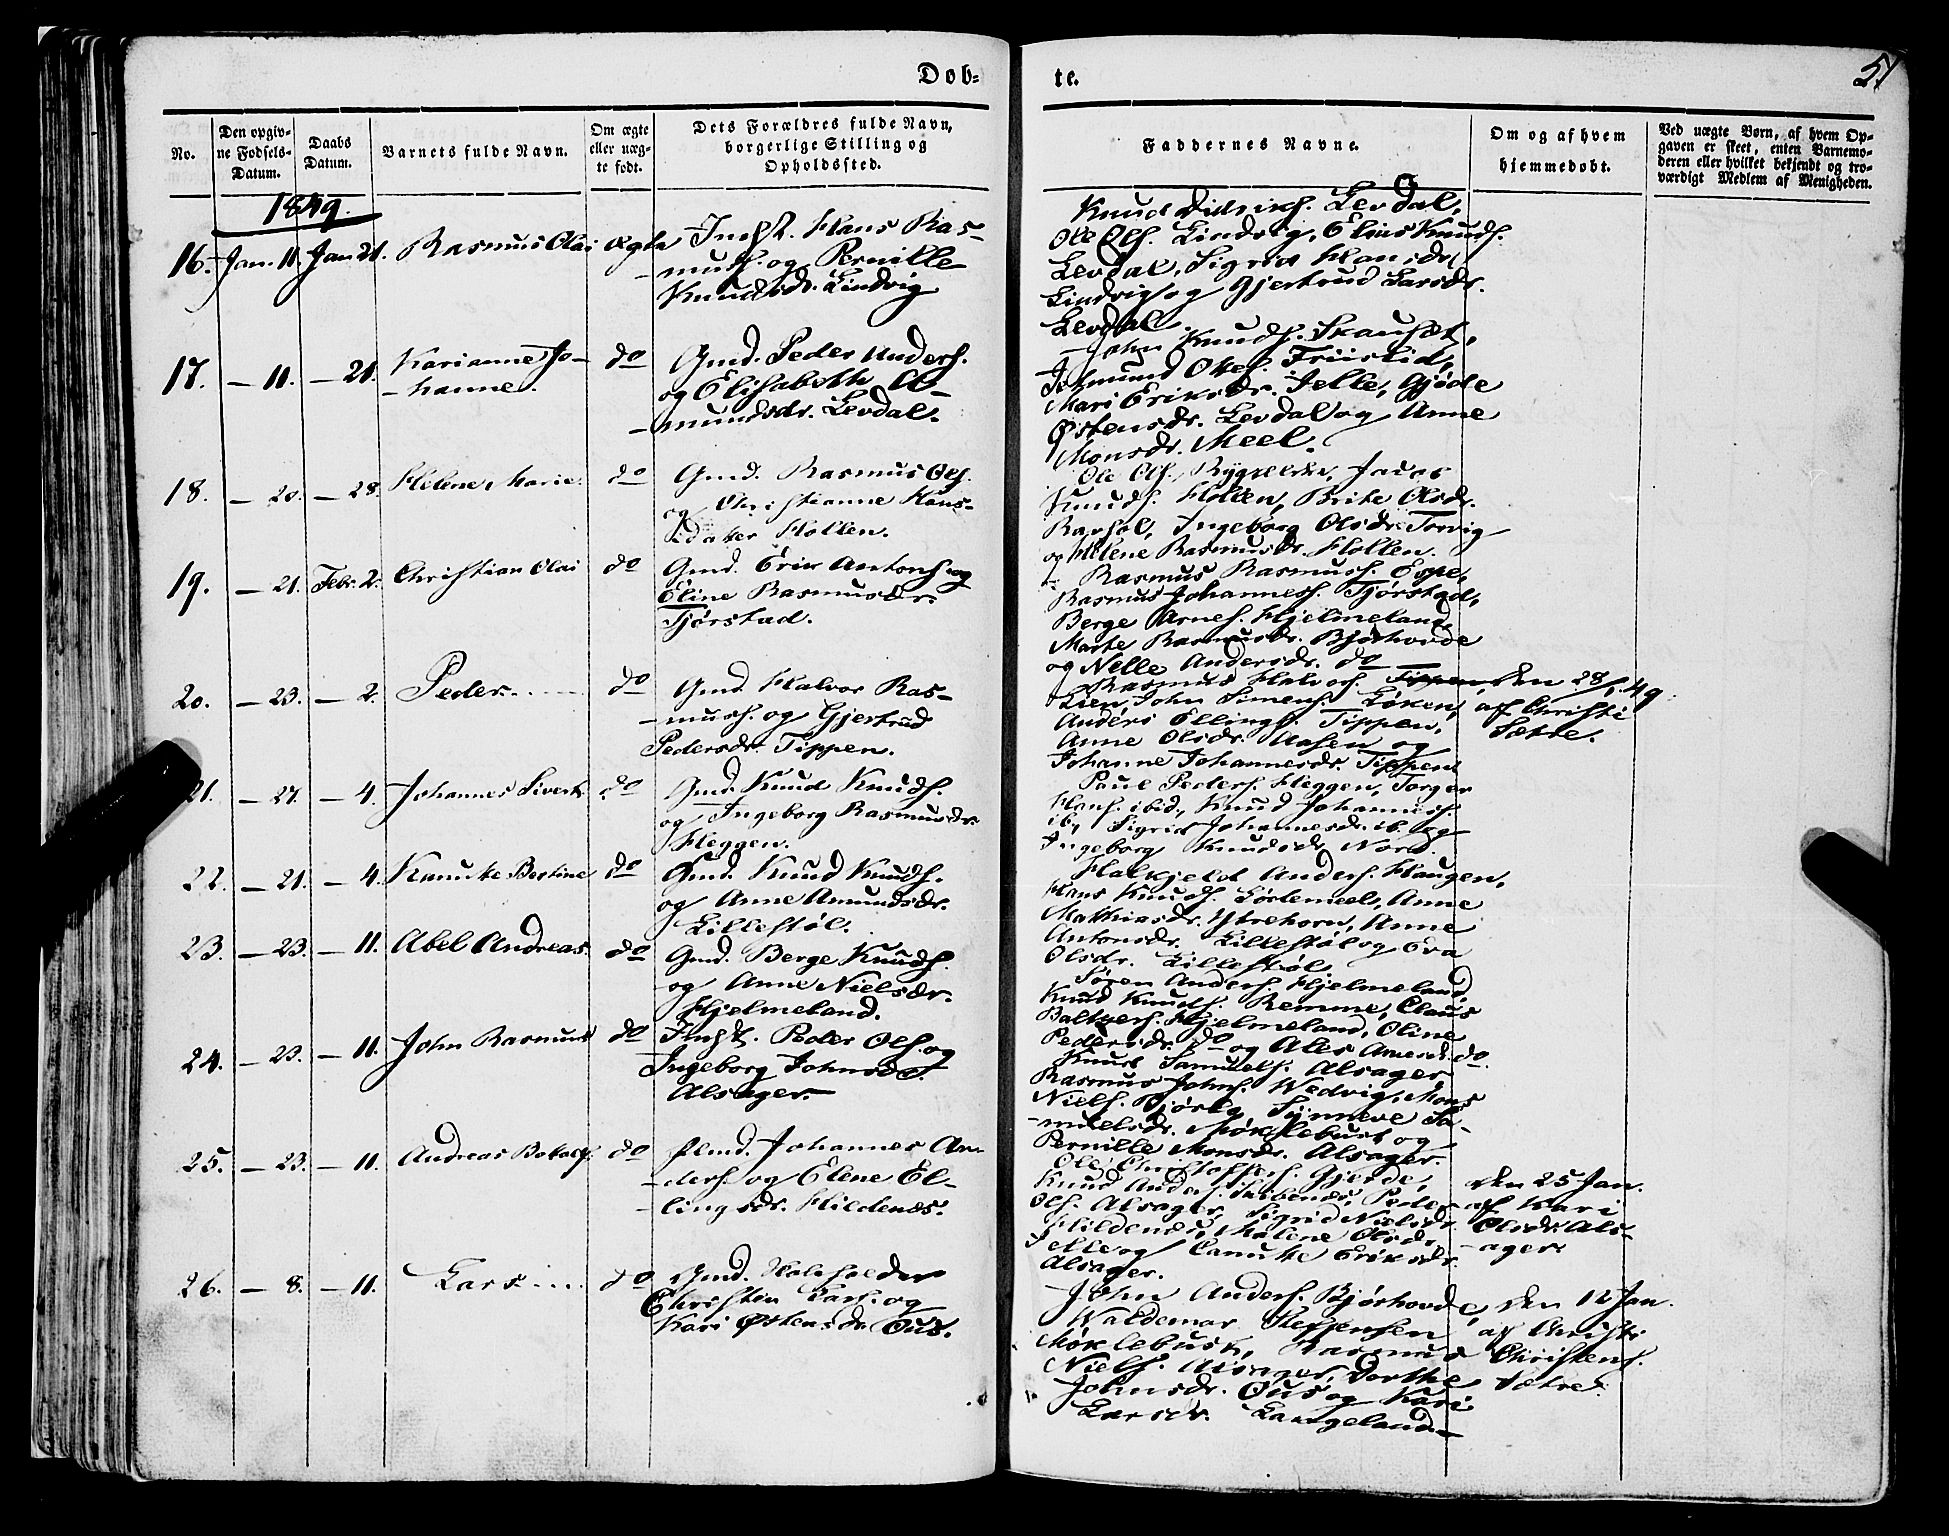 Dob-
te.
51
No.
Den opgiv-
ne Fødsels-
Datum.
Daabs
Datum.
Barnets fulde Navn.
Om ægte
eller uæg-
te født.
Dets Forældres fulde Navn,
borgerlige Stilling og
Opholdssted.
Faddernes Navne.
Om og af hvem
hjemmedøbt.
Ved uægte Børn, af hvem Op-
gaven er skeet, enten Barnemo-
deren eller hvilket bekjendt og tro-
værdigt Medlem af Menigheden.
1849.
16. Jan. 11. Jan 21. Rasmus Olai ægte
Indst. Hans Ras-
mus. og Pernille
Knudsdr. Lindvig
Knud Didriks. Levdal,
Ole Ols. Lindvig, Elias Knuds.
Levdal, Sigrid Hansdr.
Lindvig og Gjertrud Larsdr.
Levdal.
17. — 11. — 21. Karianne Jo-
hanne. do
Gmd. Peder Anders.
og Elisabeth A-
mundsdr. Levdal.
John Knuds. Skauset,
Mari Eriksdr. Jelle, Gjøde
Østensdr. Levdal og Anne
Monsdr. Meel.
18. — 20. — 28. Helene Marie. do
Gmd. Rasmus Ols.
og Christianne Hans-
dater Hollen.
Ole Ols.
Knuds. Hollen, Brite Olsdr.
Ingeborg Olsdr.
og Helene Rasmusdr. Hollen.
19. — 21. Febr. 2. Christian Olai do
Gmd. Erik Antons. og
Eline Rasmusdr.
Tjørstad.
Rasmus Rasmus. Espe,
Rasmus Johannes. Tjørstad,
Berge Arnes. Hjelmeland,
Marte Rasmusdr. Bjørhovde
og Nelle Andersdr. do
20. — 23. — 2. Peder.
do
Gmd. Halvor Ras-
mus. og Gjertrud
Pedersdr. Tippen.
Rasmus Halvors. Tippen,
Lien, John Simens. Løken,
Anders Ellings. Tippen,
Anne Olsdr. Aasen og
Johanne Johannesdr. Tippen
den 28/1. 49
af Christi
Sætre.
21. — 27. — 4. Johannes Sivert. do
Gmd. Knud Knuds.
og Ingeborg Rasmusdr.
Heggen.
Paul Peders. Heggen, Torger
Hans. ibid., Knud Johannes.
ib., Sigrid Johannesdr. ib. og
Ingeborg Knudsdr. Nord.
22. — 21. — 4. Kanutte Bertine do
Gmd. Knud Knuds.
og Anne Amundsdr.
Lillestøl.
Halkjeld Anders. Haugen,
Hans Knuds. Anne
Matthiasdr. Ytrehorn, Anne
Antonsdr. Lillestøl og Eva
Olsdr. Lillestøl.
23. — 23. — 11. Abel Andreas. do
Gmd. Berge Knuds.
og Anne Nielsdr.
Hjelmeland.
Søren Anders. Hjelmeland,
Knud Knuds. Remme, Claus
Baltzers. Hjelmeland, Oline
Pedersdr. do og Ales Arnesd. do.
24. — 23. — 11. John Rasmus do
Indst. Peder Ols. og
Ingeborg Johnsdr.
Alsager.
Knud Samuels. Alsager
Rasmus Johns. Wedvig, Mons
Niels. Synneve Sa-
muelsdr. Møklebust og
Pernille Monsdr. Alsager.
25. — 23. — 11. Andreas do
Johannes An-
ders. og Elene El-
lingsdr. Hildenes.
Ole Christoffers. Gjerde,
Knud Anders. Peder
Ols. Alsager, Sigrid Nielsdr.
Hildenes, Malene Olsdr.
Jelle og Canutte Eriksdr.
Alsager.
den 25 Jan.
af Kari
Olsdr. Als-
ager.
26. — 8. — 11. Lars
do
Gmd.
Christen Lars. og
Kari Østensdr. Ous.
John Anders. Bjørhovde,
Waldemar Steffensen
Møklebust, Rasmus
Niels. Alsager, Dorthe
Johnsdr. Ous og Kari
Larsdr. Langeland.
den 12 Jan.
af Christi
Christens.
Sætre.